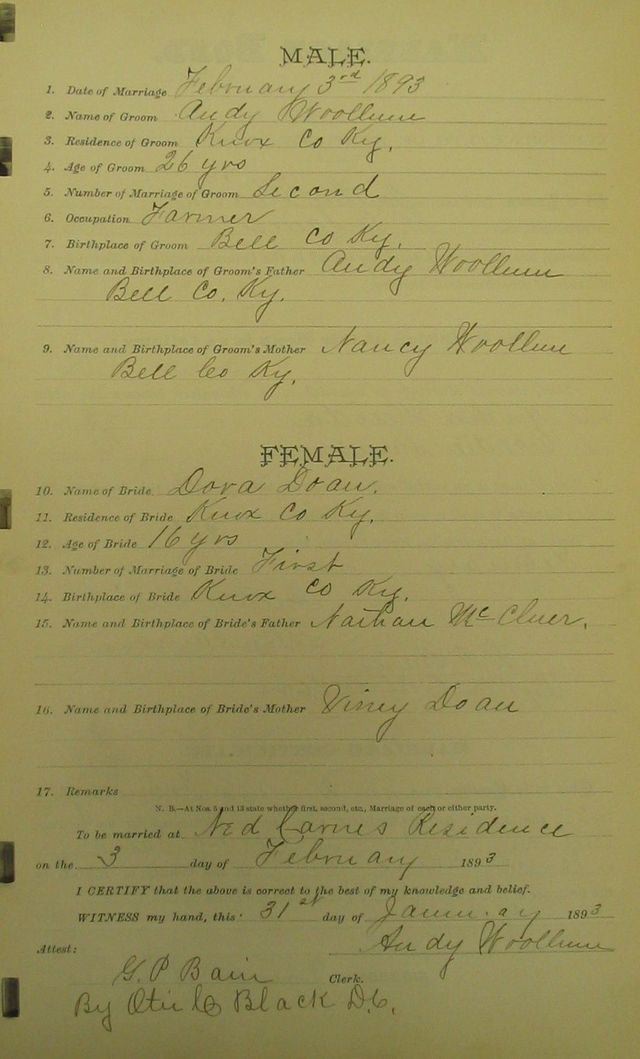 MALE.
1. Date of Marriage February 3rd 1893
2. Name of Groom Andy Woollum
3. Residence of Groom Knox Co Ky.
4. Age of Groom 26 yrs
5. Number of Marriage of Groom Second
6. Occupation Farmer
7. Birthplace of Groom Bell Co Ky.
8. Name and Birthplace of Groom's Father Andy Woollum
Bell Co. Ky.
9. Name and Birthplace of Groom's Mother Nancy Woollum
Bell Co Ky.
FEMALE.
10. Name of Bride Dora Doan.
11. Residence of Bride Knox Co Ky.
12. Age of Bride 16 yrs
13. Number of Marriage of Bride First
14. Birthplace of Bride Knox Co Ky.
15. Name and Birthplace of Bride's Father Nathan McCluer.
16. Name and Birthplace of Bride's Mother Viney Doan
17. Remarks
N. B.—At Nos. 5 and 13 state whether first, second, etc., Marriage of each or either party.
To be married at Ned Carnes Residence
on the 3 day of February 1893
I CERTIFY that the above is correct to the best of my knowledge and belief.
WITNESS my hand, this 31st day of January 1893
Andy Woollum
Attest:
G. P Bain Clerk.
By Otis C Black D.C.